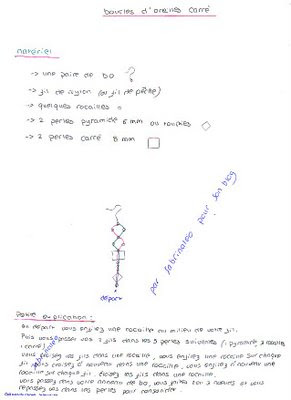 boucles d'oreilles carré
matériel
-> une paire de bo
-> fil de nylon (ou fil de pêche)
-> quelques rocailles
-> 2 perles pyramide 6 mm ou toupies
-> 2 perles carré 8 mm
par fabrinalea pour son blog
départ
explication :
Au départ vous enfilez une rocaille au milieu de votre fil.
Puis vous passez vos 2 fils dans les perles suivante (1 pyramide, 1 rocaille
1 carré)
vous croisez vos fils dans une rocaille, vous enfilez une rocaille sur chaque
fil puis croisez d'nouveau dans une rocaille, vous enfilez d'nouveau une
rocaille sur chaque fil croisez les fils dans une rocaille.
vous passez dans votre anneau de bo, vous faites 2 ou 3 noeuds et vous
repassez dans les perles pour consolider.